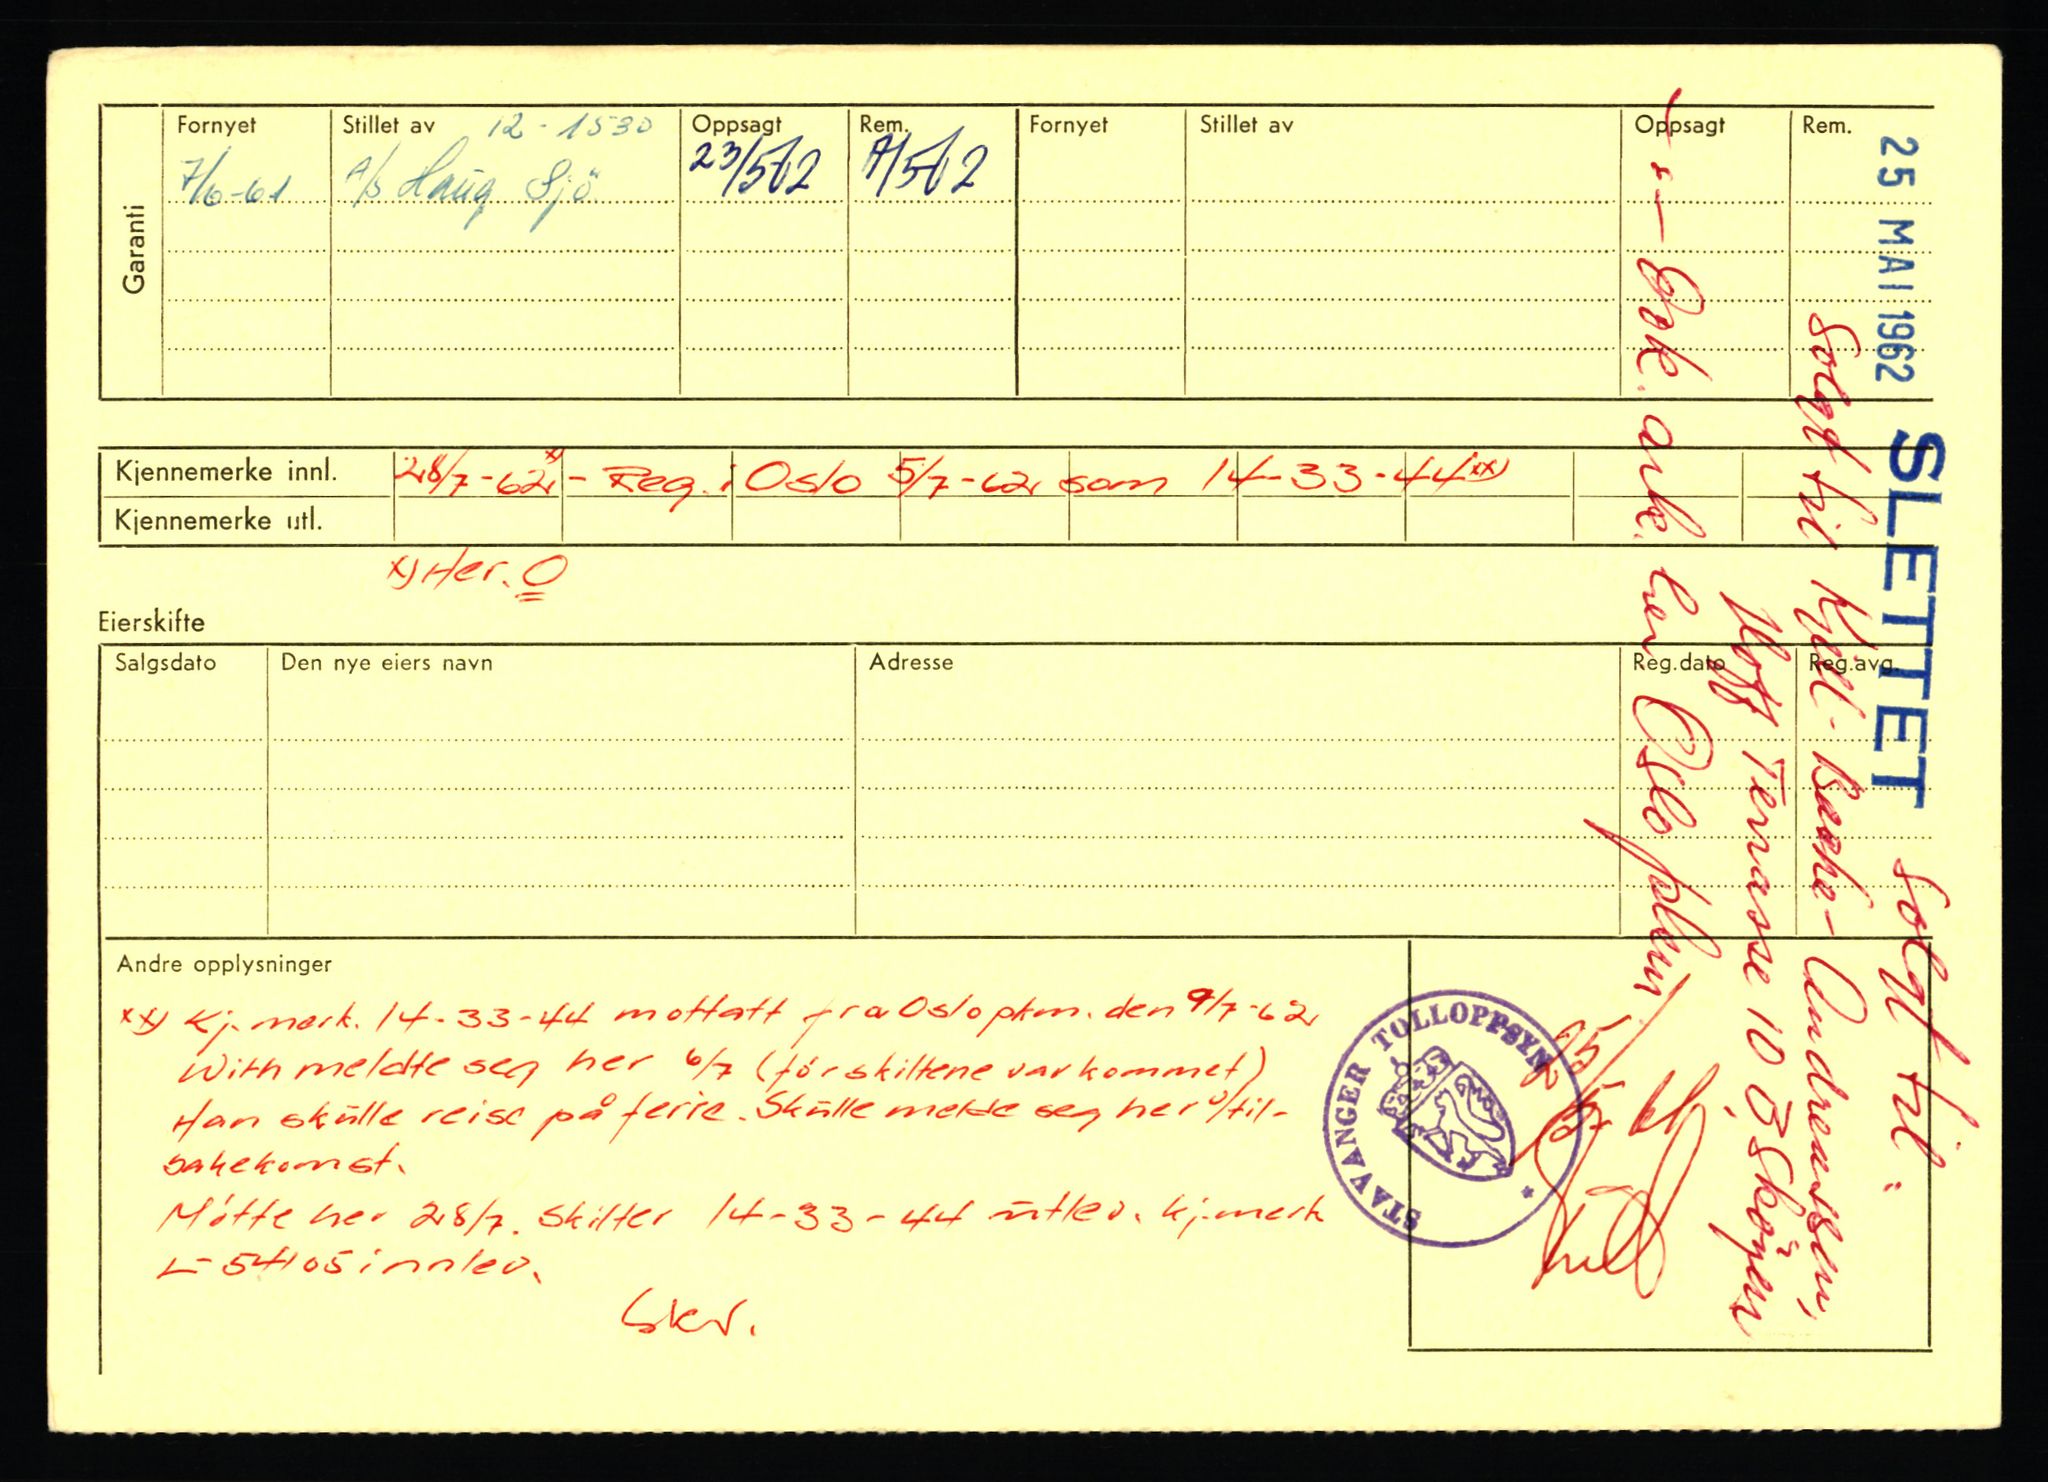 Garanti
Fornyet Stillet av 12-1530 Oppsagt Rem. Fornyet Stillet av Oppsagt Rem.
7/6-61 A/S Haug Sjö 23/562
Kjennemerke innl. 28/7-62 x) - Reg. i Oslo 5/7-62 som 14-33-44 xx)
Kjennemerke utl.
x) Her. O
Eierskifte
Salgsdato Den nye eiers navn Adresse Reg.dato Reg.avg.
Andre opplysninger
xx) Kj.merk. 14-33-44 mottatt fra Oslo pkm. den 9/7-62
With meldte seg her 6/7 (før skiltene var kommet)
Han skulle reise på ferie. Skulle melde seg her v/til-
bakekomst.
Møtte her 28/7. Skilter 14-33-44 utlev. kj.merk
L-54105 innlev.
Skr.
STAVANGER TOLLOPPSYN
25 MAI 1962
SLETTET
Solgt til:
Solgt til Kjell Bache-Andreassen,
Hoff Terrasse 10 Ø Skøyen
Oslo